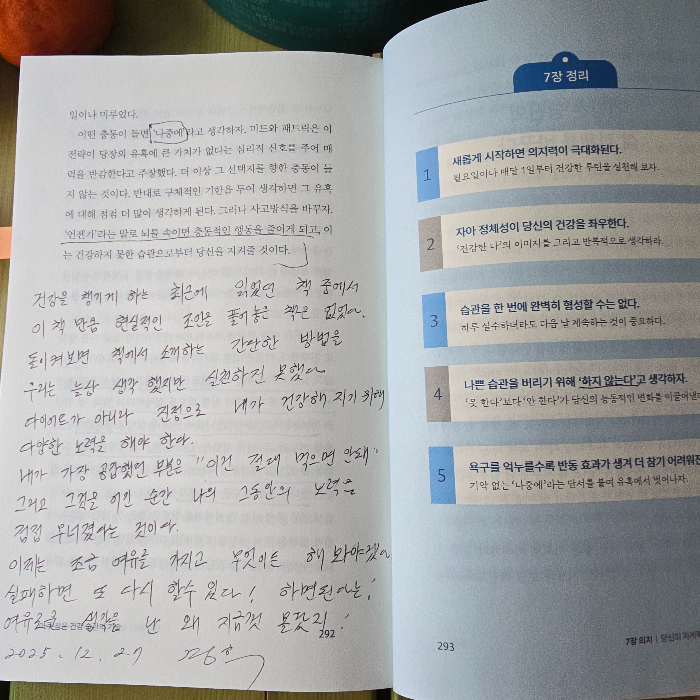 일이나 미루었다.
어떤 충동이 들면 '나중에'라고 생각하자. 미드와 패트릭은 이
전략이 당장의 유혹에 큰 가치가 없다는 심리적 신호를 주어 매
력을 반감한다고 주장했다. 더 이상 그 선택지를 향한 충동이 들
지 않는 것이다. 반대로 구체적인 기한을 두어 생각하면 그 유혹
에 대해 점점 더 많이 생각하게 된다. 그러니 사고방식을 바꾸자.
'언젠가'라는 말로 뇌를 속이면 충동적인 행동을 줄이게 되고, 이
는 건강하지 못한 습관으로부터 당신을 지켜줄 것이다.
건강을 챙기게 하는 최근에 읽었던 책 중에서
이 책 만큼 현실적인 조언을 풀어놓은 책은 없었다.
돌이켜보면 책에서 소개하는 간단한 방법을
우리는 늘상 생각 했지만 실천하진 못했다
다이어트가 아니라 진정으로 내가 건강해 지기 위해
다양한 노력을 해야 한다.
내가 가장 공감했던 부분은 "이건 절대 먹으면 안돼"
그리고 그것을 어긴 순간 나의 그동안의 노력을
점점 무너졌다는 것이다.
이제는 조금 여유를 가지고 무엇이든 해 봐야겠다
실패하면 또 다시 할수 있다! 하면된다는!
여유로운 생각을 난 왜 지금껏 몰랐지!
292
2025. 12. 27
7장 정리
1 새롭게 시작하면 의지력이 극대화된다.
월요일이나 매달 1일부터 건강한 루틴을 실천해 보자.
2 자아 정체성이 당신의 건강을 좌우한다.
'건강한 나'의 이미지를 그리고 반복적으로 생각하라.
3 습관을 한 번에 완벽히 형성할 수는 없다.
하루 실수하더라도 다음 날 계속하는 것이 중요하다.
4 나쁜 습관을 버리기 위해 '하지 않는다'고 생각하자.
'못 한다'보다 '안 한다'가 당신의 능동적인 변화를 이끌어낸다
5 욕구를 억누를수록 반동 효과가 생겨 더 참기 어려워진
기약 없는 '나중에'라는 단서를 붙여 유혹에서 벗어나자.
293
7장 의지 | 당신의 자제력